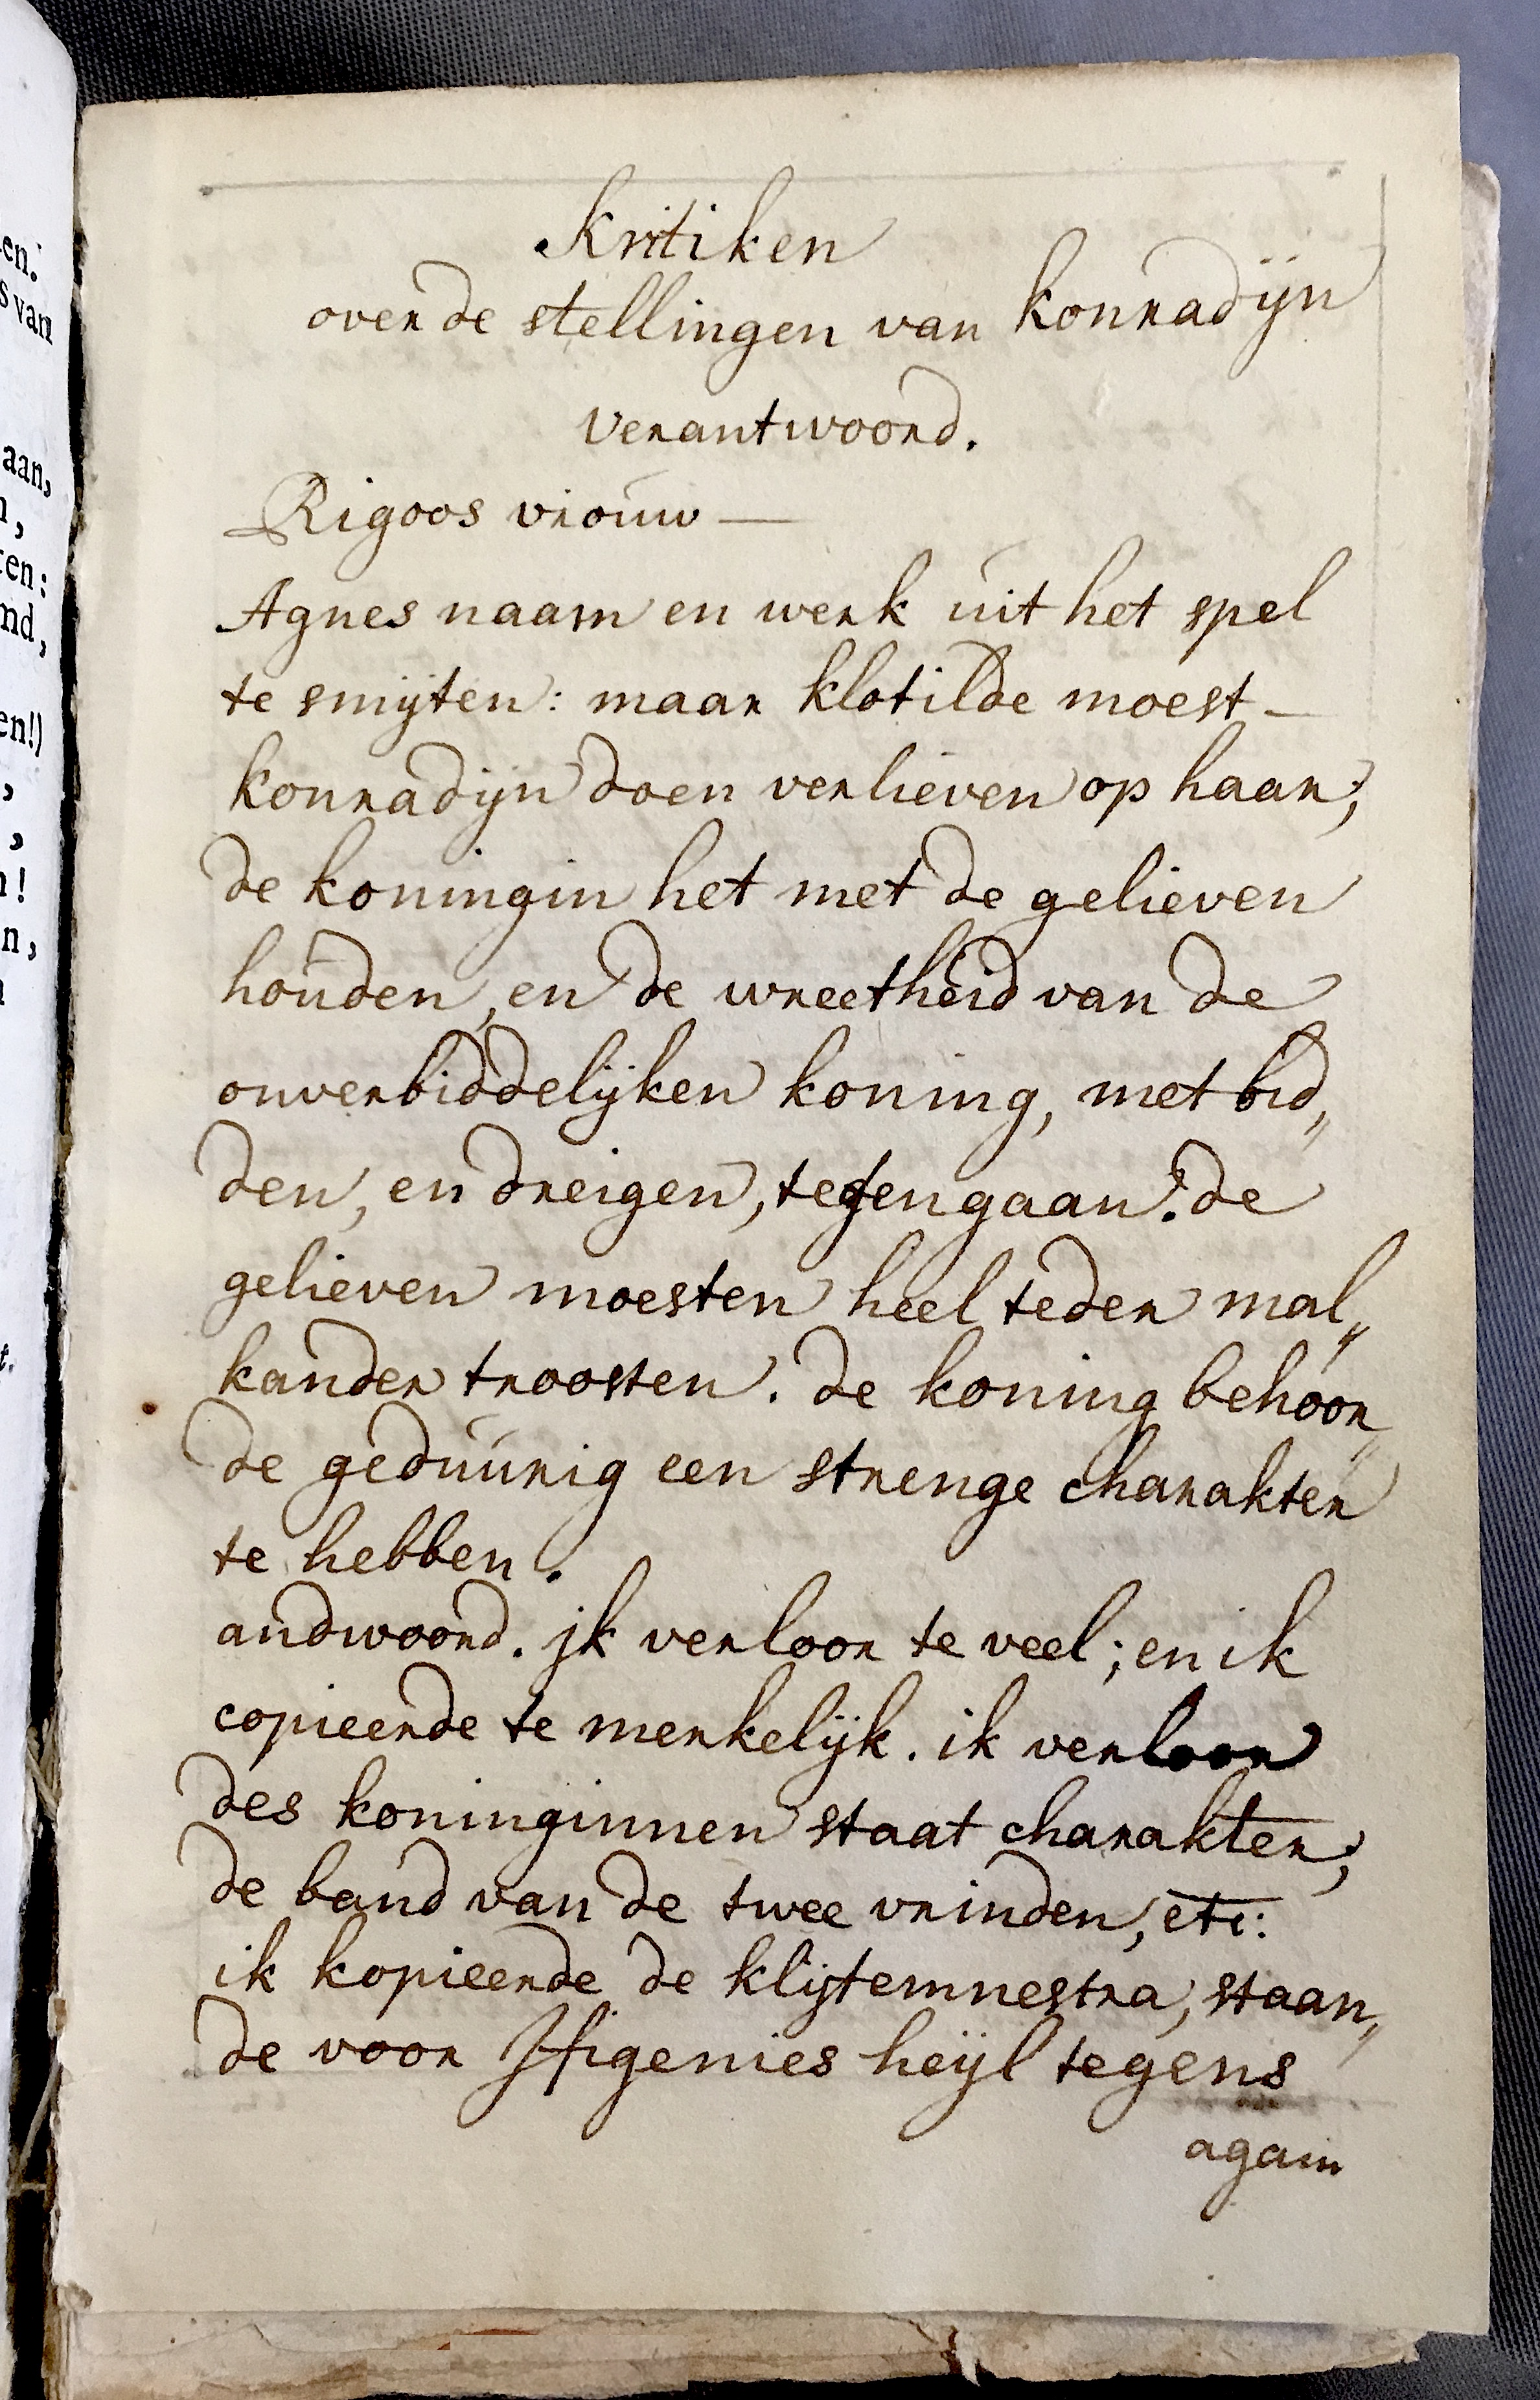 en.
s van
aan,
n,
ten:
nd,
en!)
,
,
n!
n,
t.
Kritiken
over de stellingen van konradijn
verantwoord.
Rigoos vrouw —
Agnes naam en werk uit het spel
te smijten: maar klotilde moest —
konradijn doen verlieven op haar;
de koningin het met de gelieven
houden, en de wreetheid van de
onverbiddelijken koning, met bid„
den, en dreigen, tegengaan. de
gelieven moesten heel teder mal„
kander troosten. de koning behoor„
de geduurig een strenge charakter
te hebben.
andwoord. jk verloor te veel; en ik
copieerde te merkelijk. ik verloor
des koninginnen staat charakter;
de band van de twee vrinden, etc:
ik kopieerde de klijtemnestra, staan„
de voor Ifigenies heijl tegens
again